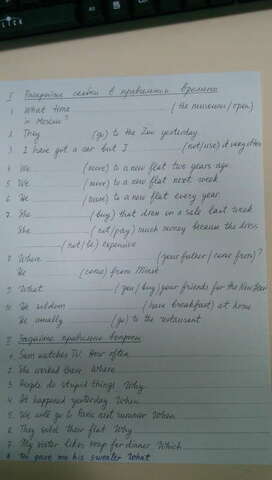 I Раскройте скобки в правильном времени
1. What time ______ (the museum/open)
in Moscow?
2. They ______ (go) to the Zoo yesterday
3. I have got a car but I ______ (not/use) it very often
4. We ______ (move) to a new flat two years ago.
5. We ______ (move) to a new flat next week.
6. We ______ (move) to a new flat every year.
7. She ______ (buy) that dress on a sale last week
She ______ (not/pay) much money because the dress
______ (not/be) expensive
8. Where ______ (your father/come from)?
He ______ (come) from Minsk
9. What ______ (you/buy) your friends for the New Year
10. We seldom ______ (have breakfast) at home
We usually ______ (go) to the restaurant
II Задайте правильно вопрос
1. Sam watches TV. How often
2. She worked there. Where
3. People do stupid things Why
4. It happened yesterday When
5. We will go to Paris next summer When
6. They sold their flat Why
7. My sister likes soup for dinner Which
8. He gave me his sweater What